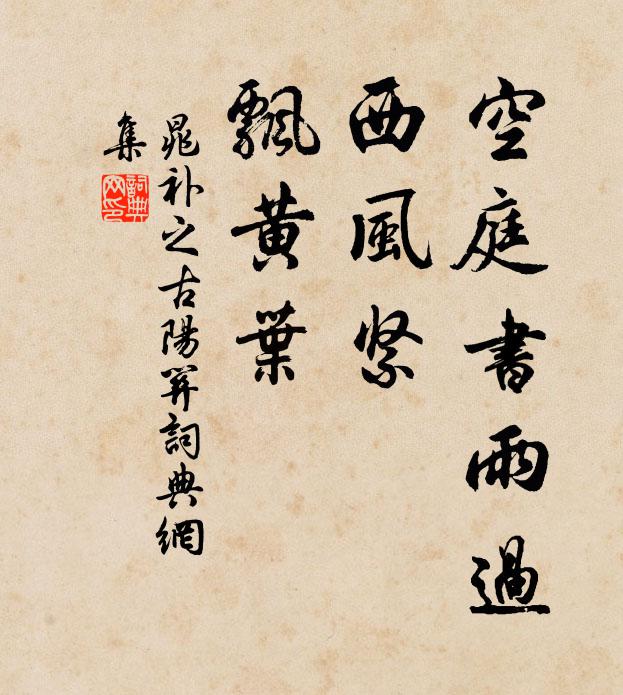 空庭書雨過
西風緊
飄黃葉
晁补之古陽關詞典網
集
詞典
网印